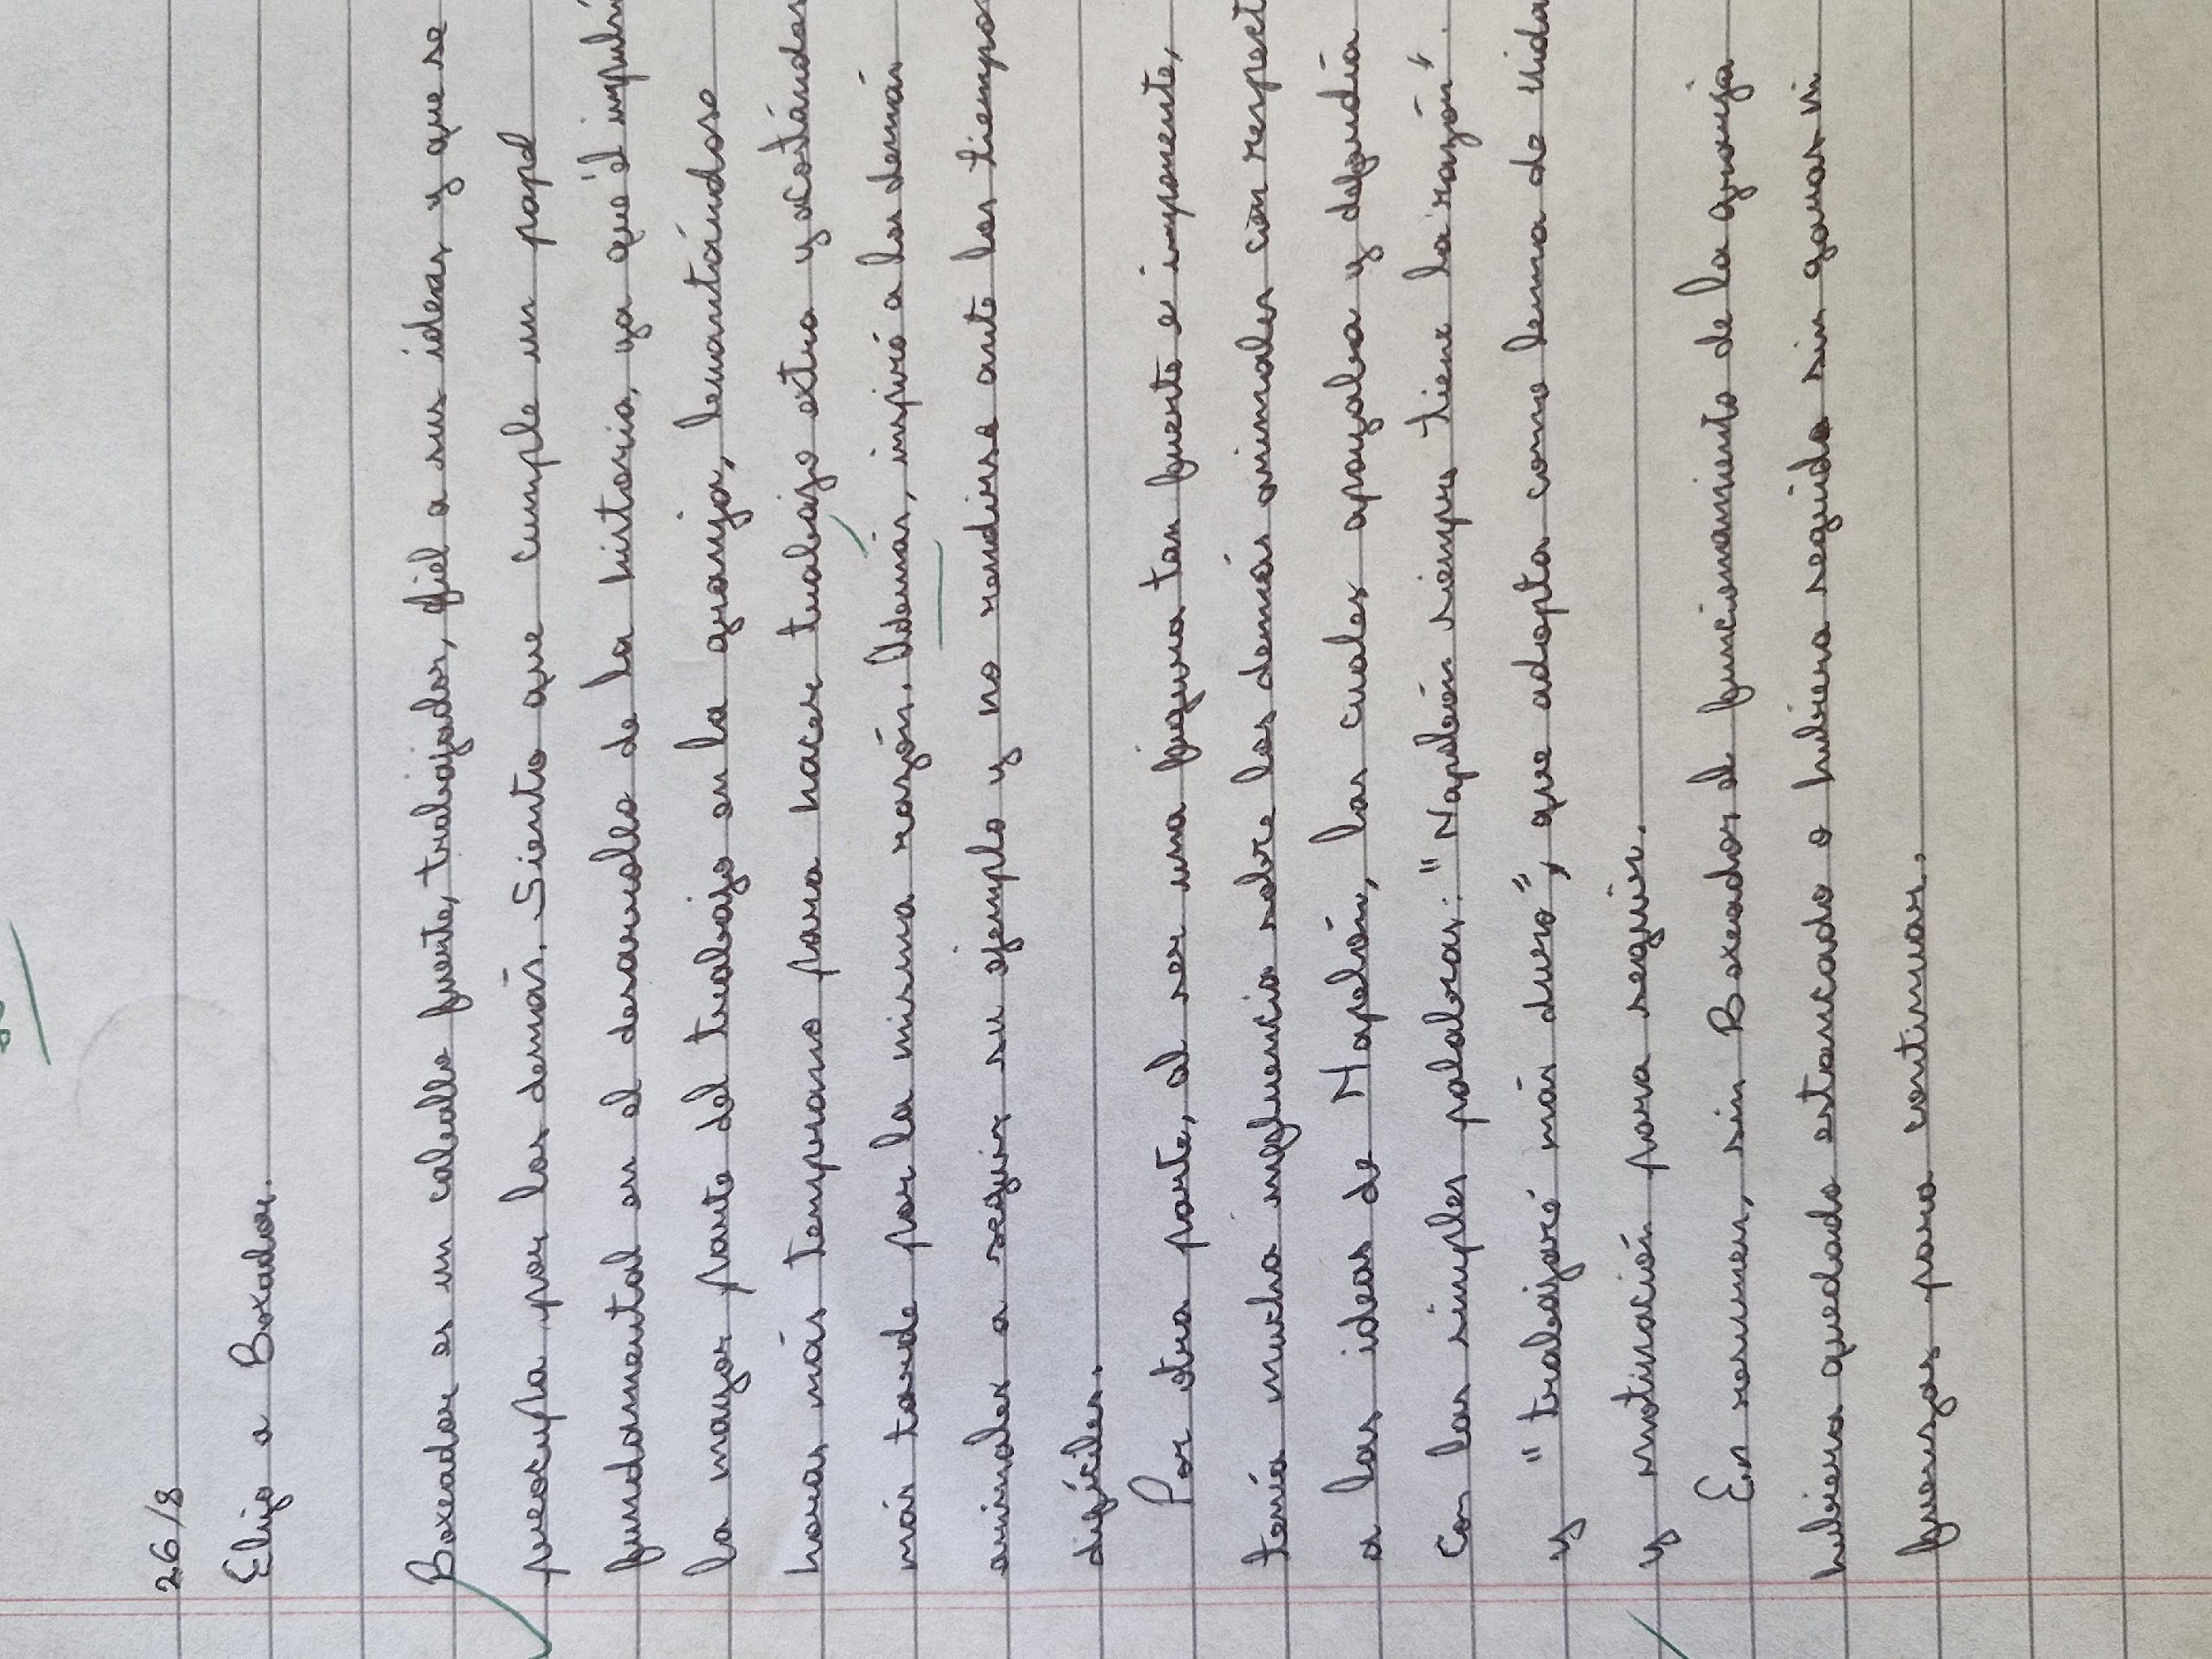 26/8
Elijo a Boxeador.
Boxeador es un caballo fuerte, trabajador, fiel a sus ideas y que se
preocupa por los demás. Siento que cumple un papel
fundamental en el desarrollo de la historia, ya que él
la mayor parte del trabajo en la granja, levantándose
horas más temprano para hacer trabajo extra y acostándose
más tarde por la misma razón. Además, inspiró a los demás
animales a seguir su ejemplo y no rendirse ante los tiempos
difíciles.
Por otra parte, al ser una figura tan fuerte e imponente,
tenía mucha influencia sobre los demás animales con respect
a las ideas de Napoleón, las cuales apoyaba y defendía
con las simples palabras: "Napoleón siempre tiene la razón"
y "trabajaré más duro", que adopta como lema de vida
y motivación para seguir.
En resumen, sin Boxeador el funcionamiento de la granja
hubiera quedado estancado o hubiera seguido sin ganas ni
fuerzas para continuar.